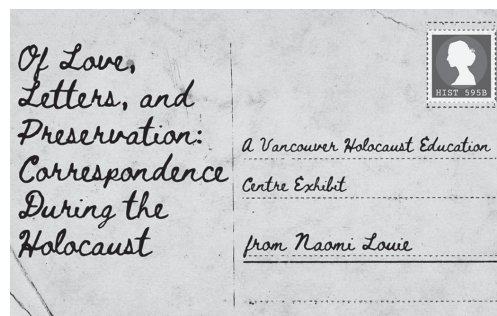 Of Love,
Letters, and
Preservation:
Correspondence
During the
Holocaust
HIST 595B
A Vancouver Holocaust Education
Centre Exhibit
from Naomi Louie